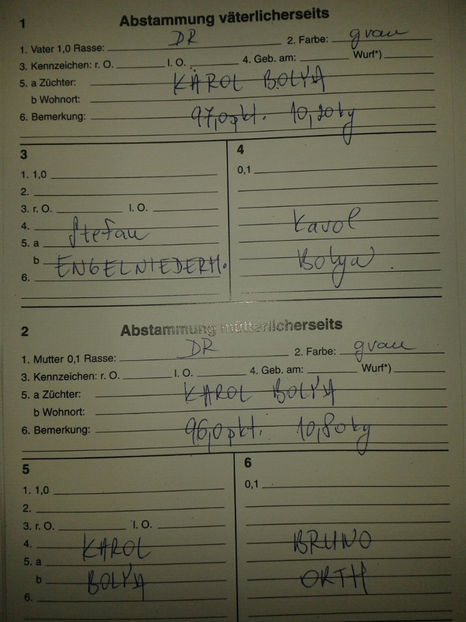 1 Abstammung väterlicherseits
1. Vater 1,0 Rasse: DR 2. Farbe: grau
3. Kennzeichen: r. O. l. O. 4. Geb. am: Wurf*)
5. a Züchter: KAROL BOLYA
b Wohnort:
6. Bemerkung: 97,0 pkt. 10,20 kg
3 4
1. 1,0 0,1
2.
3. r. O. l. O.
4. Stefan Karol
5. a
b ENGELNIEDERH. Bolya
6.
2 Abstammung mütterlicherseits
1. Mutter 0,1 Rasse: DR 2. Farbe: grau
3. Kennzeichen: r. O. l. O. 4. Geb. am: Wurf*)
5. a Züchter: KAROL BOLYA
b Wohnort:
6. Bemerkung: 96,0 pkt. 10,80 kg
5 6
1. 1,0 0,1
2.
3. r. O. l. O.
4. KAROL BRUNO
5. a
b BOLYA ORTH
6.